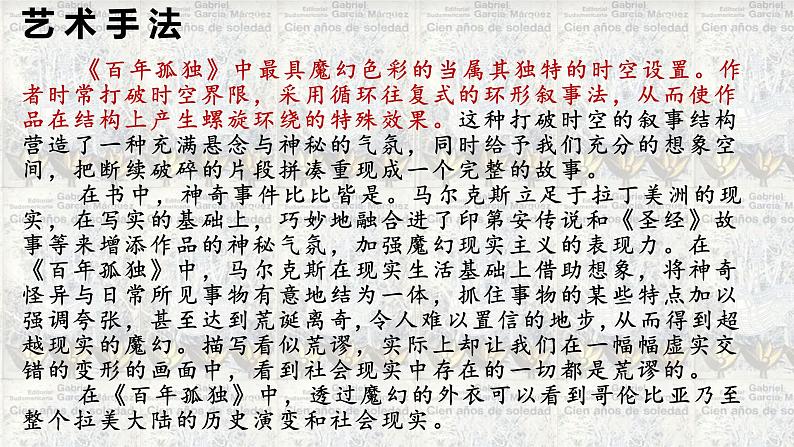 艺术手法
《百年孤独》中最具魔幻色彩的当属其独特的时空设置。作
者时常打破时空界限，采用循环往复式的环形叙事法，从而使作
品在结构上产生螺旋环绕的特殊效果。这种打破时空的叙事结构
营造了一种充满悬念与神秘的气氛，同时给予我们充分的想象空
间，把断续破碎的片段拼凑重现成一个完整的故事。
在书中，神奇事件比比皆是。马尔克斯立足于拉丁美洲的现
实，在写实的基础上，巧妙地融合进了印第安传说和《圣经》故
事等来增添作品的神秘气氛，加强魔幻现实主义的表现力。在
《百年孤独》中，马尔克斯在现实生活基础上借助想象，将神奇
怪异与日常所见事物有意地结为一体，抓住事物的某些特点加以
强调夸张，甚至达到荒诞离奇,令人难以置信的地步,从而得到超
越现实的魔幻。描写看似荒谬，实际上却让我们在一幅幅虚实交
错的变形的画面中，看到社会现实中存在的一切都是荒谬的。
在《百年孤独》中，透过魔幻的外衣可以看到哥伦比亚乃至
整个拉美大陆的历史演变和社会现实。